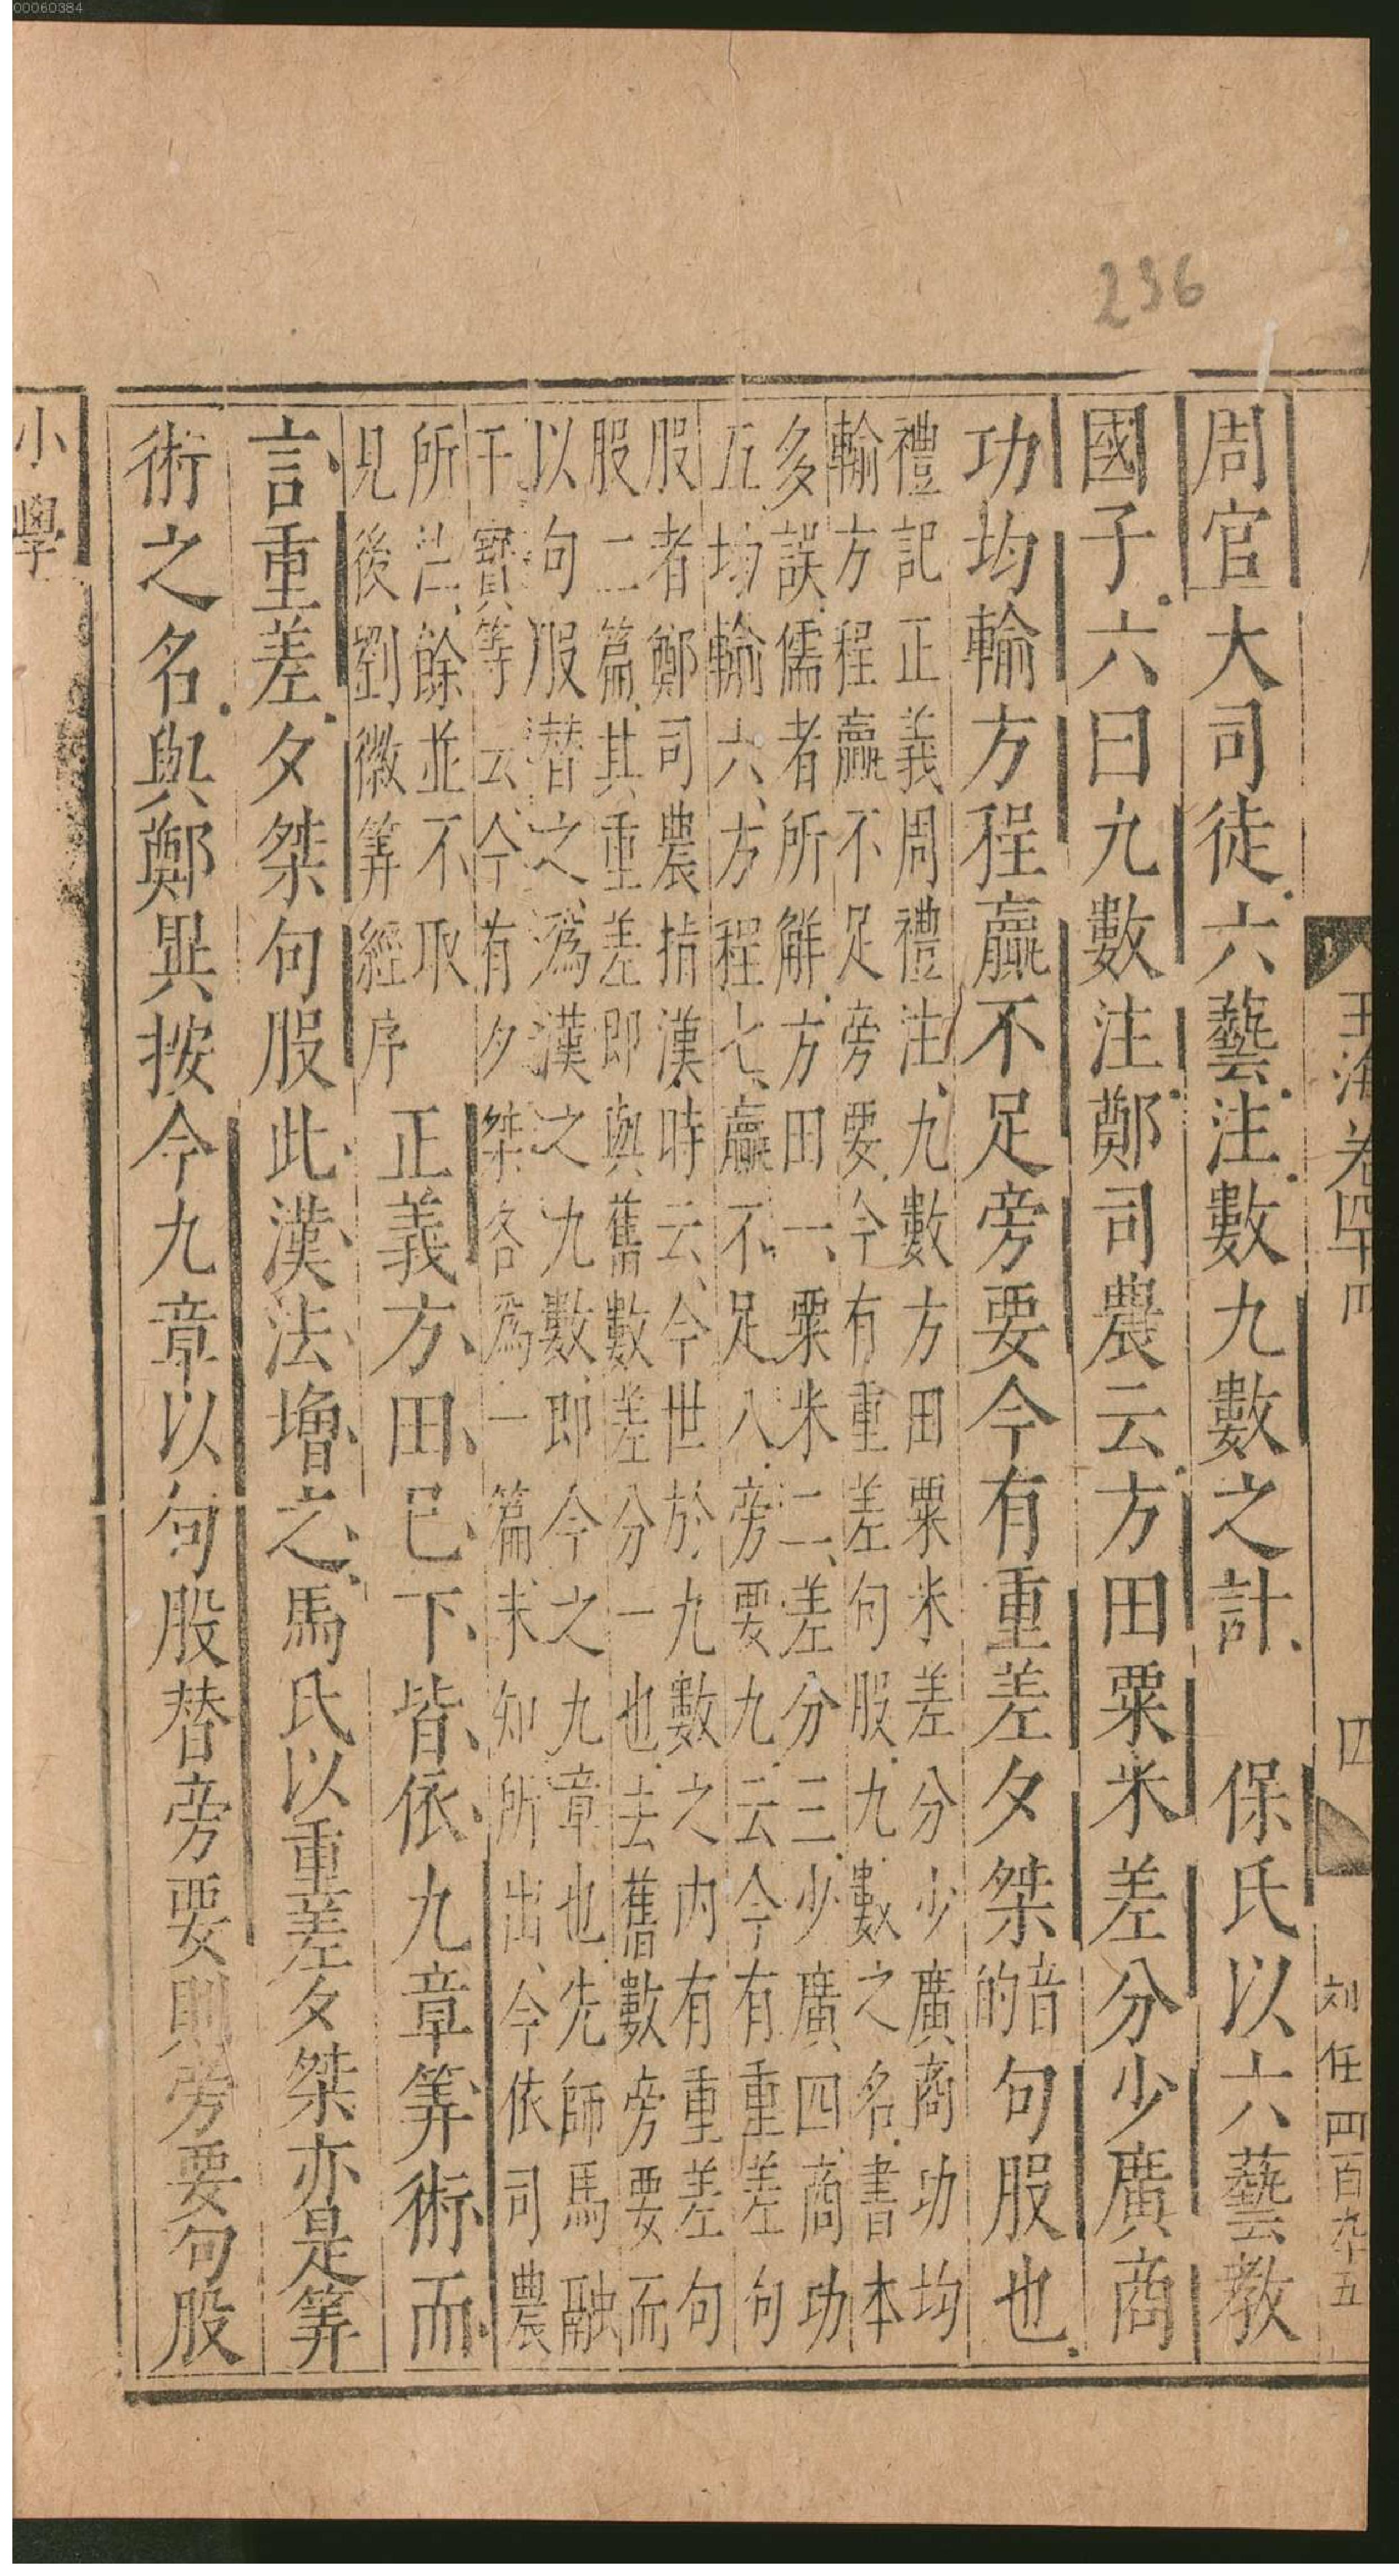 00060384
236
玉海卷四十四
四
刘任四百九十五
周官大司徒六藝注數九數之計　保氏以六藝教
國子六曰九數注鄭司農云方田粟米差分少廣商
功均輸方程贏不足旁要今有重差夕桀音的句股也
禮記正義周禮注九數方田粟米差分少廣商功均
輸方程贏不足旁要今有重差句股九數之名書本
多誤儒者所解方田一粟米二差分三少廣四商功
五均輸六方程七贏不足八旁要九云今有重差句
股者鄭司農指漢時云今世於九數之内有重差句
股二篇其重差即與舊數差分一也去舊數旁要而
以句股替之為漢之九數即今之九章也先師馬融
干寶等云今有夕桀各為一篇未知所出今依司農
所注餘並不取
見後劉徽筭經序
正義方田已下皆依九章筭術而
言重差夕桀句股此漢法增之馬氏以重差夕桀亦是筭
術之名與鄭異按今九章以句股替旁要則旁要句股
小學